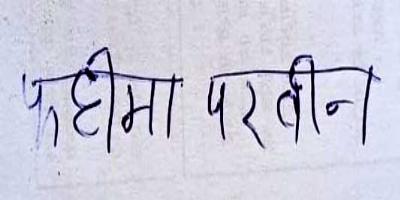 फहीमा परवीन